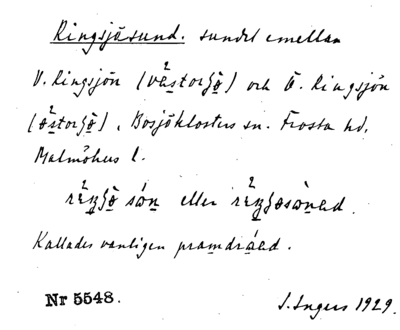 Ringsjösund. sundet emellan
V. Ringsjön (västorʃö) och Ö. Ringsjön
(östorʃö), Bosjöklosters sn. Frosta hd,
Malmöhus l.
eller
Kallades vanligen pramdráed.
Nr 5548. J. Ingers 1929.